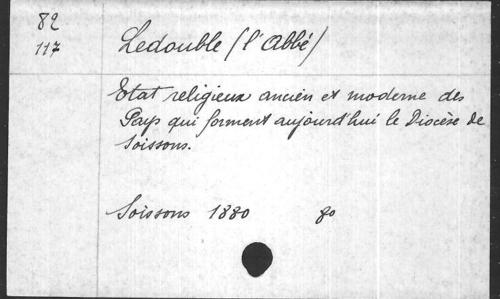 82
117
Ledouble (l'Abbé)
Etat religieux ancien et moderne des
Pays qui forment aujourd'hui le Diocèse de
Soissons.
Soissons 1880 8o